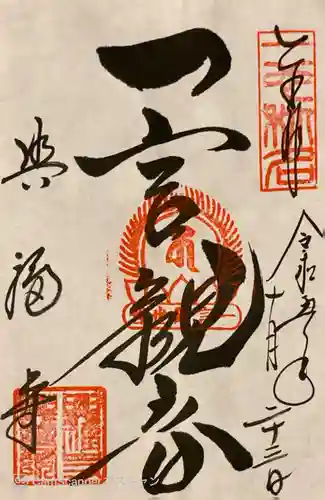 令和五年
十一月
二十三日
一言観音
興福寺
CamScanner でスキャン